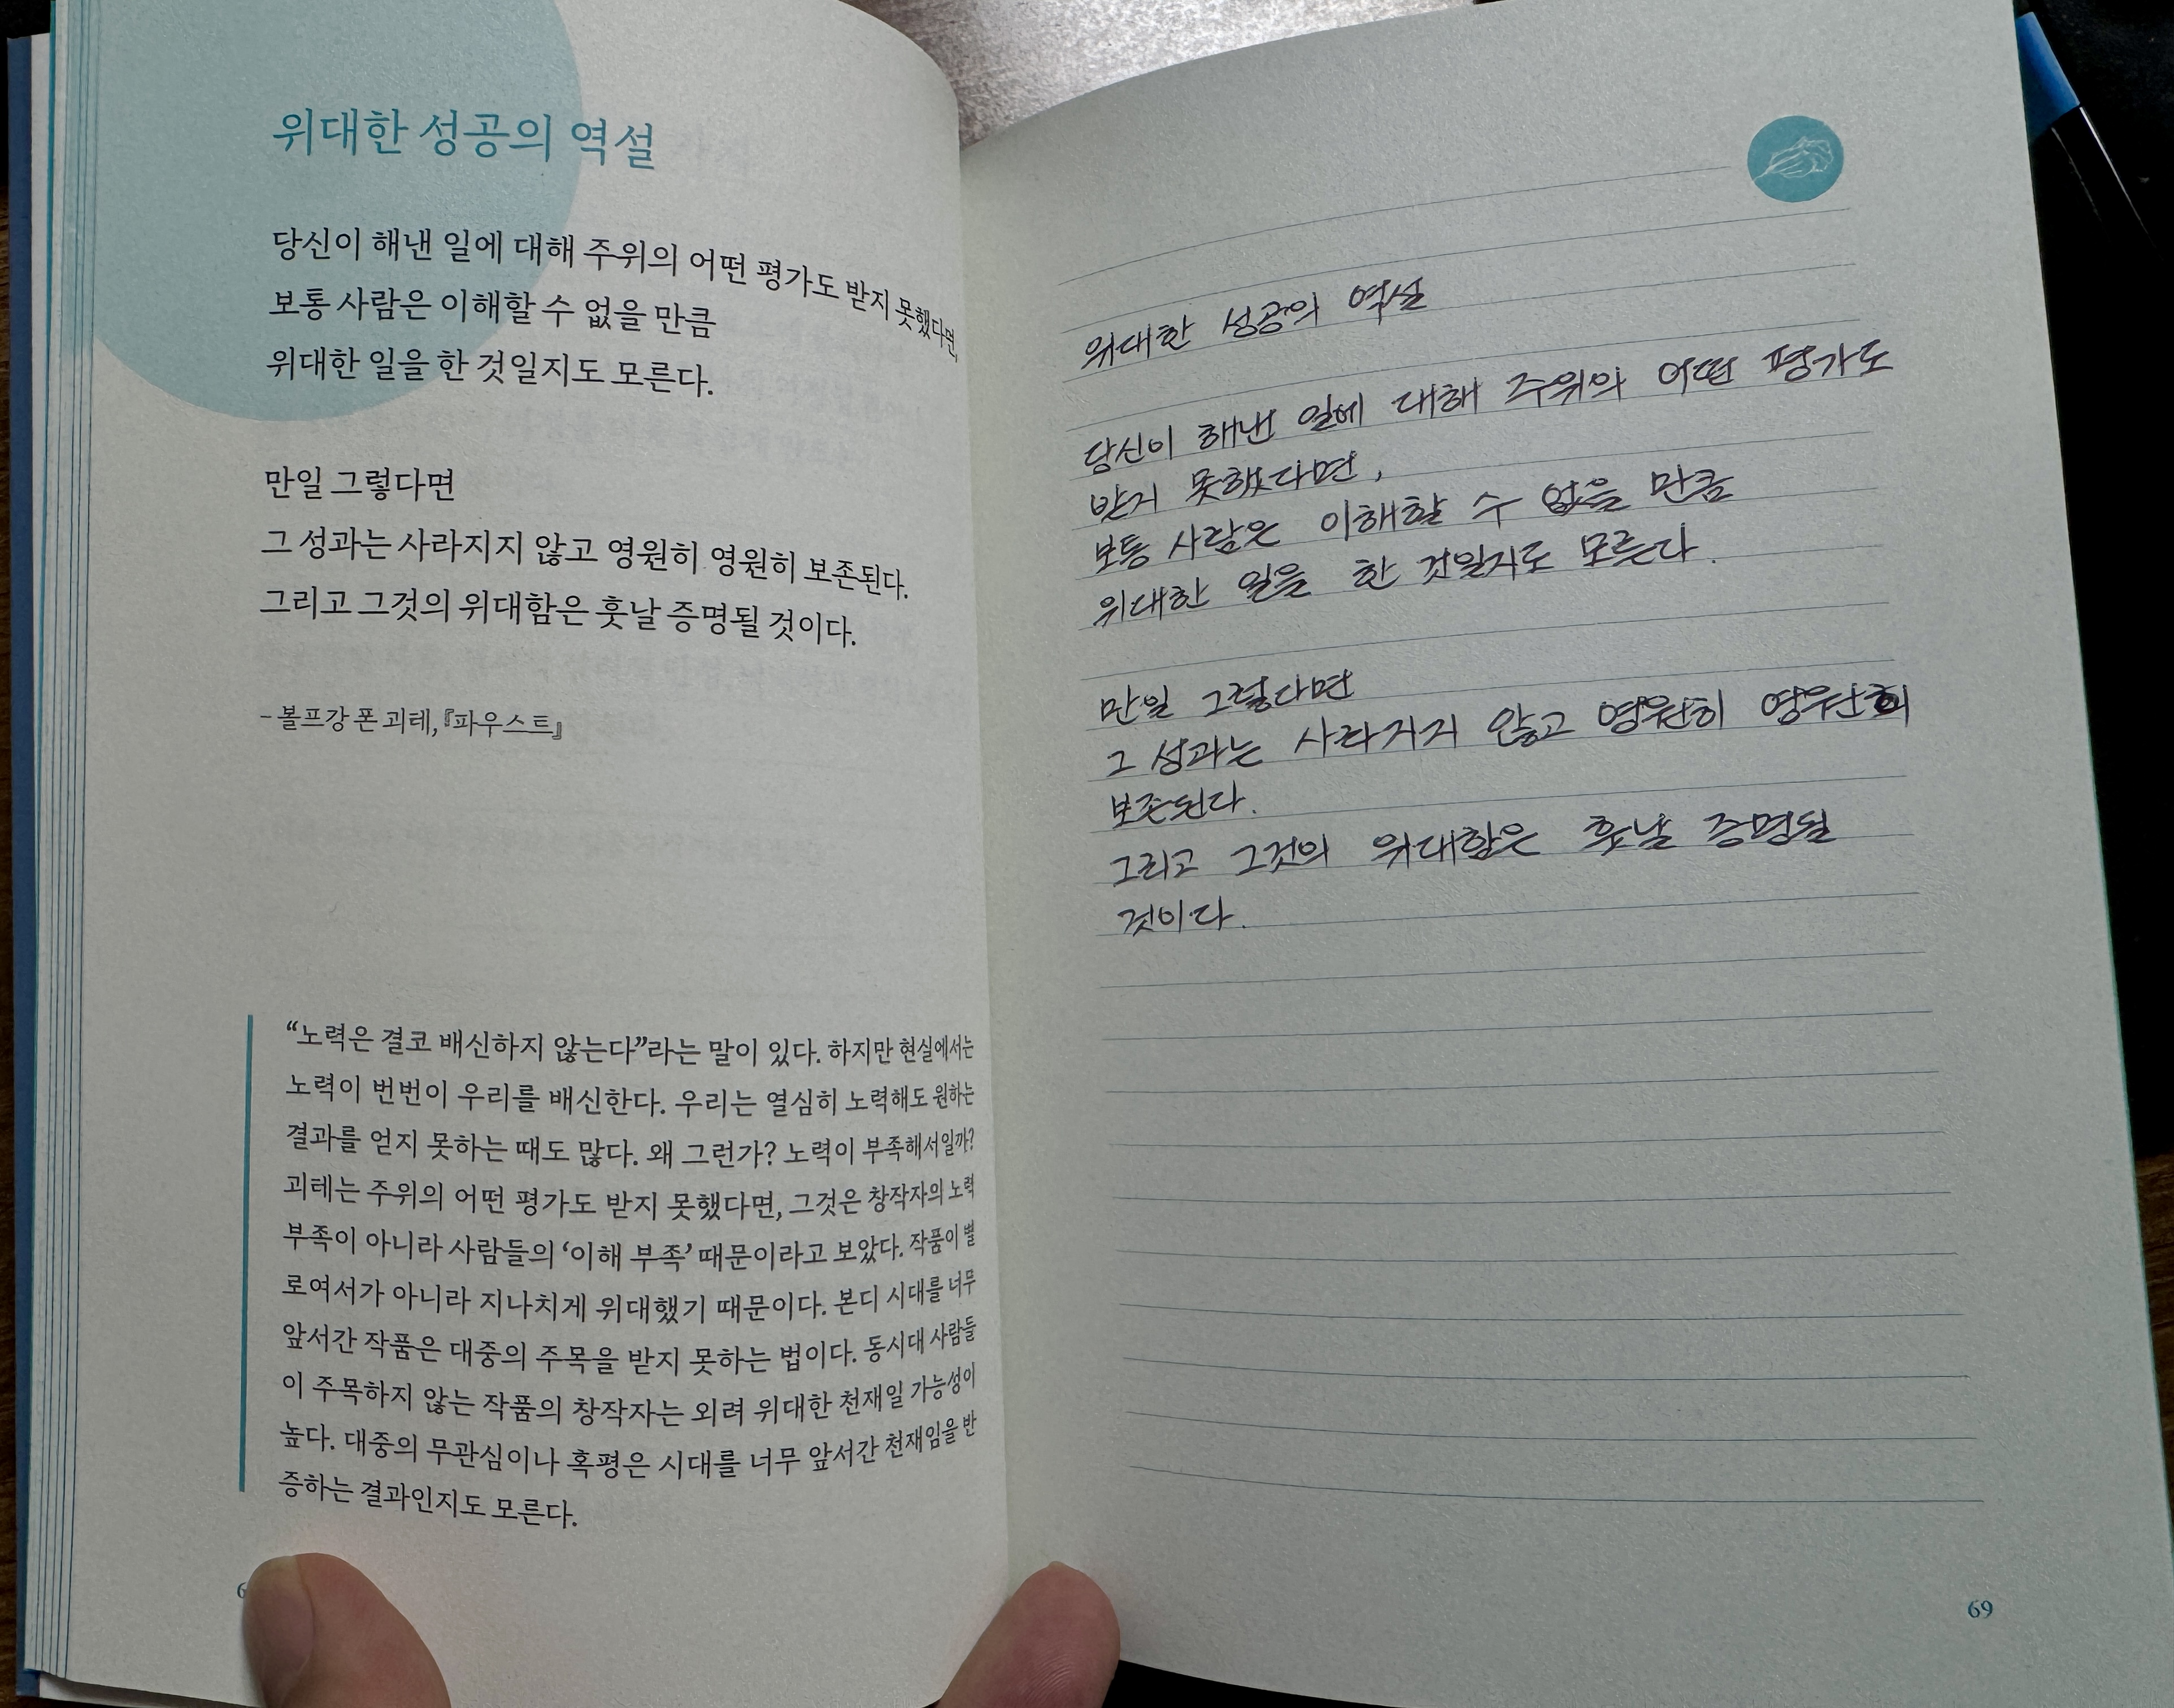 위대한 성공의 역설
당신이 해낸 일에 대해 주위의 어떤 평가도 받지 못했다면,
보통 사람은 이해할 수 없을 만큼
위대한 일을 한 것일지도 모른다.
만일 그렇다면
그 성과는 사라지지 않고 영원히 영원히 보존된다.
그리고 그것의 위대함은 훗날 증명될 것이다.
- 볼프강 폰 괴테, 『파우스트』
“노력은 결코 배신하지 않는다”라는 말이 있다. 하지만 현실에서는
노력이 번번이 우리를 배신한다. 우리는 열심히 노력해도 원하는
결과를 얻지 못하는 때도 많다. 왜 그런가? 노력이 부족해서일까?
괴테는 주위의 어떤 평가도 받지 못했다면, 그것은 창작자의 노력
부족이 아니라 사람들의 ‘이해 부족’ 때문이라고 보았다. 작품이 별
로여서가 아니라 지나치게 위대했기 때문이다. 본디 시대를 너무
앞서간 작품은 대중의 주목을 받지 못하는 법이다. 동시대 사람들
이 주목하지 않는 작품의 창작자는 외려 위대한 천재일 가능성이
높다. 대중의 무관심이나 혹평은 시대를 너무 앞서간 천재임을 반
증하는 결과인지도 모른다.
위대한 성공의 역설
당신이 해낸 일에 대해 주위의 어떤 평가도
받지 못했다면,
보통 사람은 이해할 수 없을 만큼
위대한 일을 한 것일지도 모른다.
만일 그렇다면
그 성과는 사라지지 않고 영원히 영원히
보존된다.
그리고 그것의 위대함은 훗날 증명될
것이다.
69